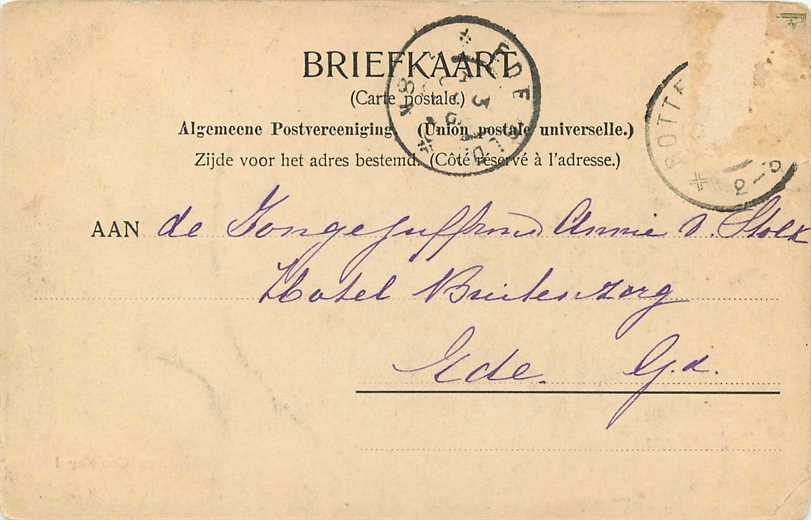 BRIEFKAART
(Carte postale.)
Algemeene Postvereeniging. (Union postale universelle.)
Zijde voor het adres bestemd. (Côté réservé à l'adresse.)
AAN de Jongejuffrouw Annie v. Stolk
Hotel Buitenzorg
Ede. Gd.
EDE
ROTTE